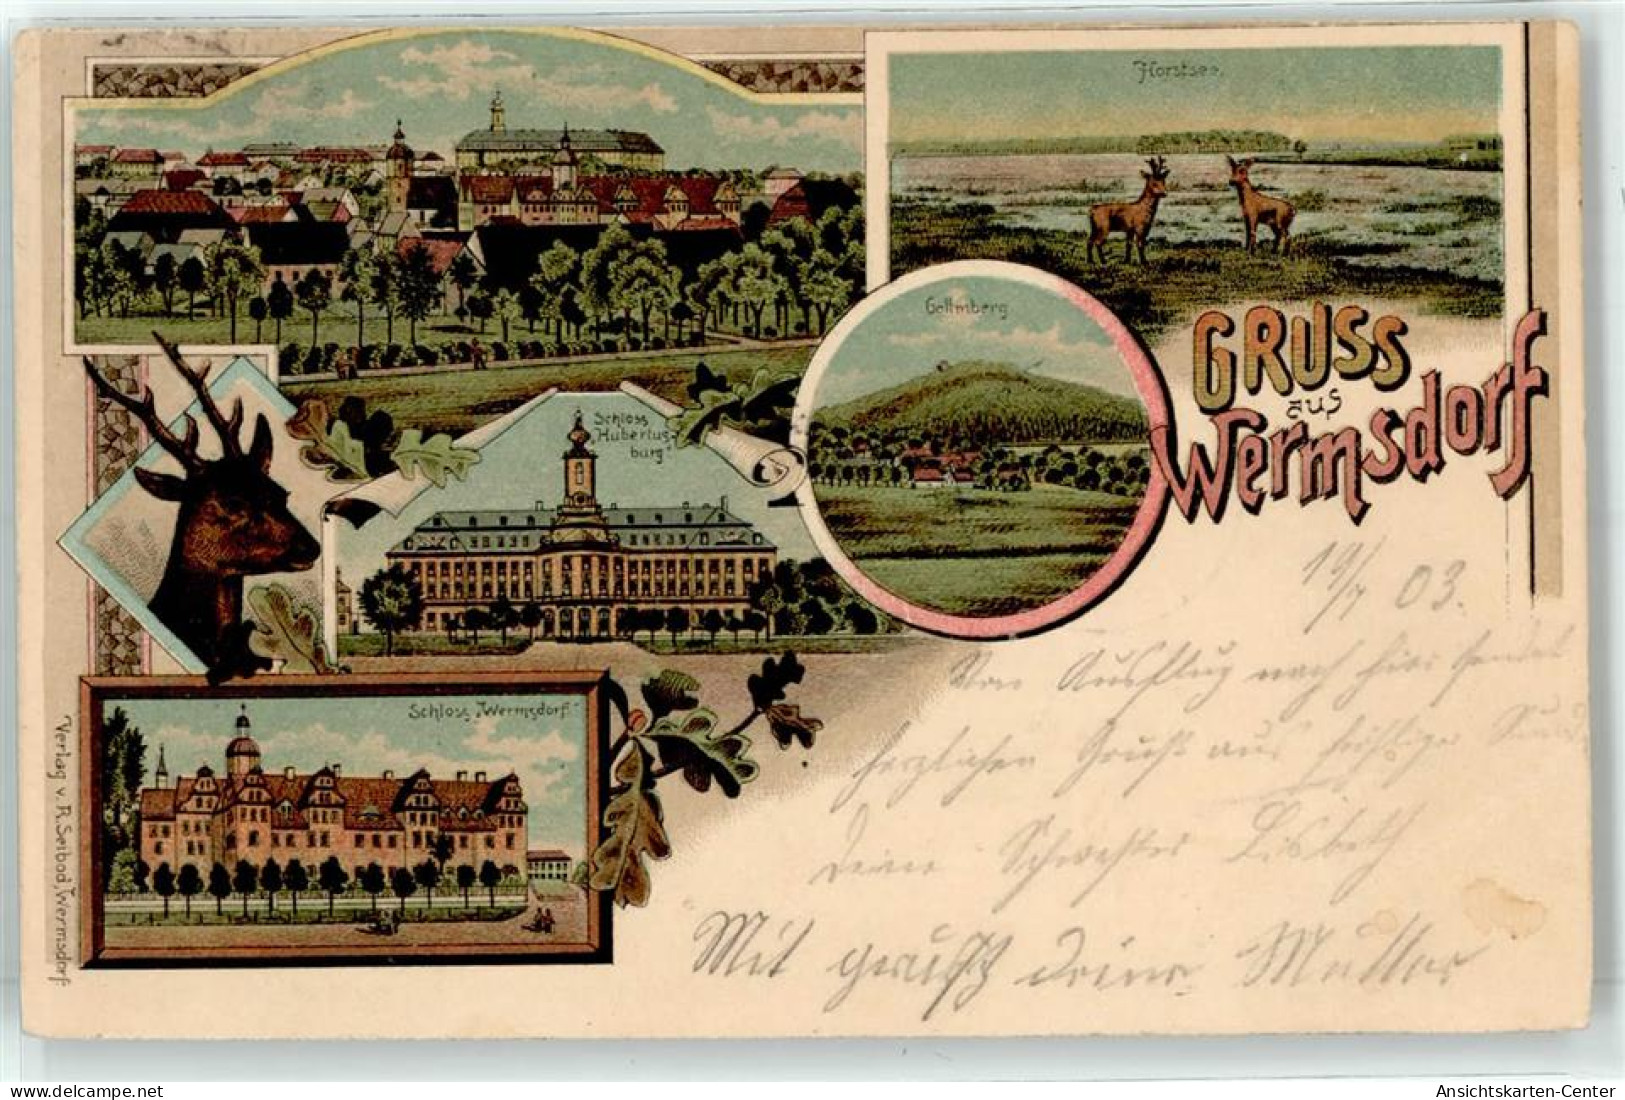 Horstsee.
Collmberg
GRUSS
aus
Wermsdorf
Schloss
„Hubertus-
burg“
Schloss „Wermsdorf“
Verlag v. R. Seibod, Wermsdorf.
19/7 03.
Vom Ausflug nach hier sendet
herzlichen Gruß aus
Deine Schwester Lisbeth
Mit gruß deine Mutter
Ansichtskarten-Center